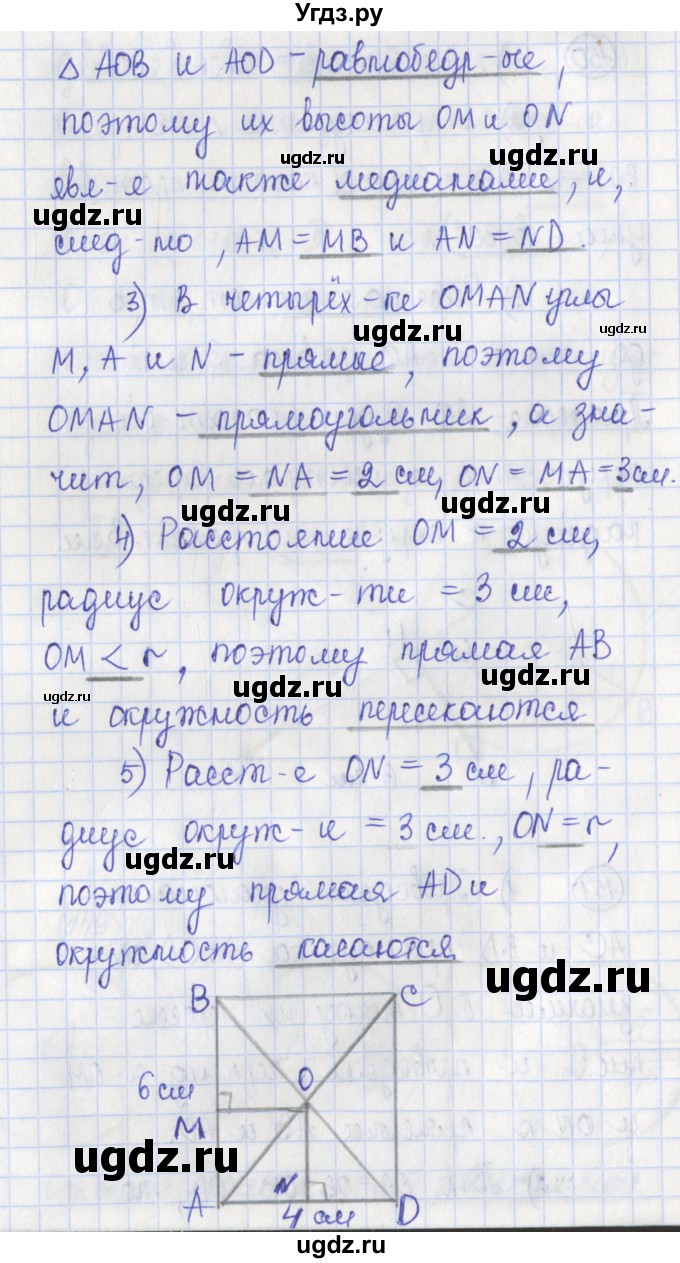 Угдз.ру
△ AOB и AOD – равнобедр-ые,
поэтому их высоты OM и ON
ugdz.ru
ugdz.ru
явл-я также медианами, и,
ugdz.ru
след-но, AM = MB и AN = ND.
3) В четырёх-ке OMAN углы
ugdz.ru
ugdz.ru
M, A и N – прямые, поэтому
OMAN – прямоугольник, а зна-
ugdz.ru
чит, OM = NA = 2 см, ON = MA = 3 см.
ugdz.ru
ugdz.ru
4) Расстояние OM = 2 см,
радиус окруж-ти = 3 см,
OM < r, поэтому прямая AB
ugdz.ru
ugdz.ru
ugdz.ru
и окружность пересекаются
5) Расст-е ON = 3 см, ра-
диус окруж-и = 3 см., ON = r,
ugdz.ru
ugdz.ru
поэтому прямая AD и
окружность касаются
ugdz.ru
B
C
O
6 см
M
ugdz.ru
ugdz.ru
A
N
D
4 см
ugdz.ru